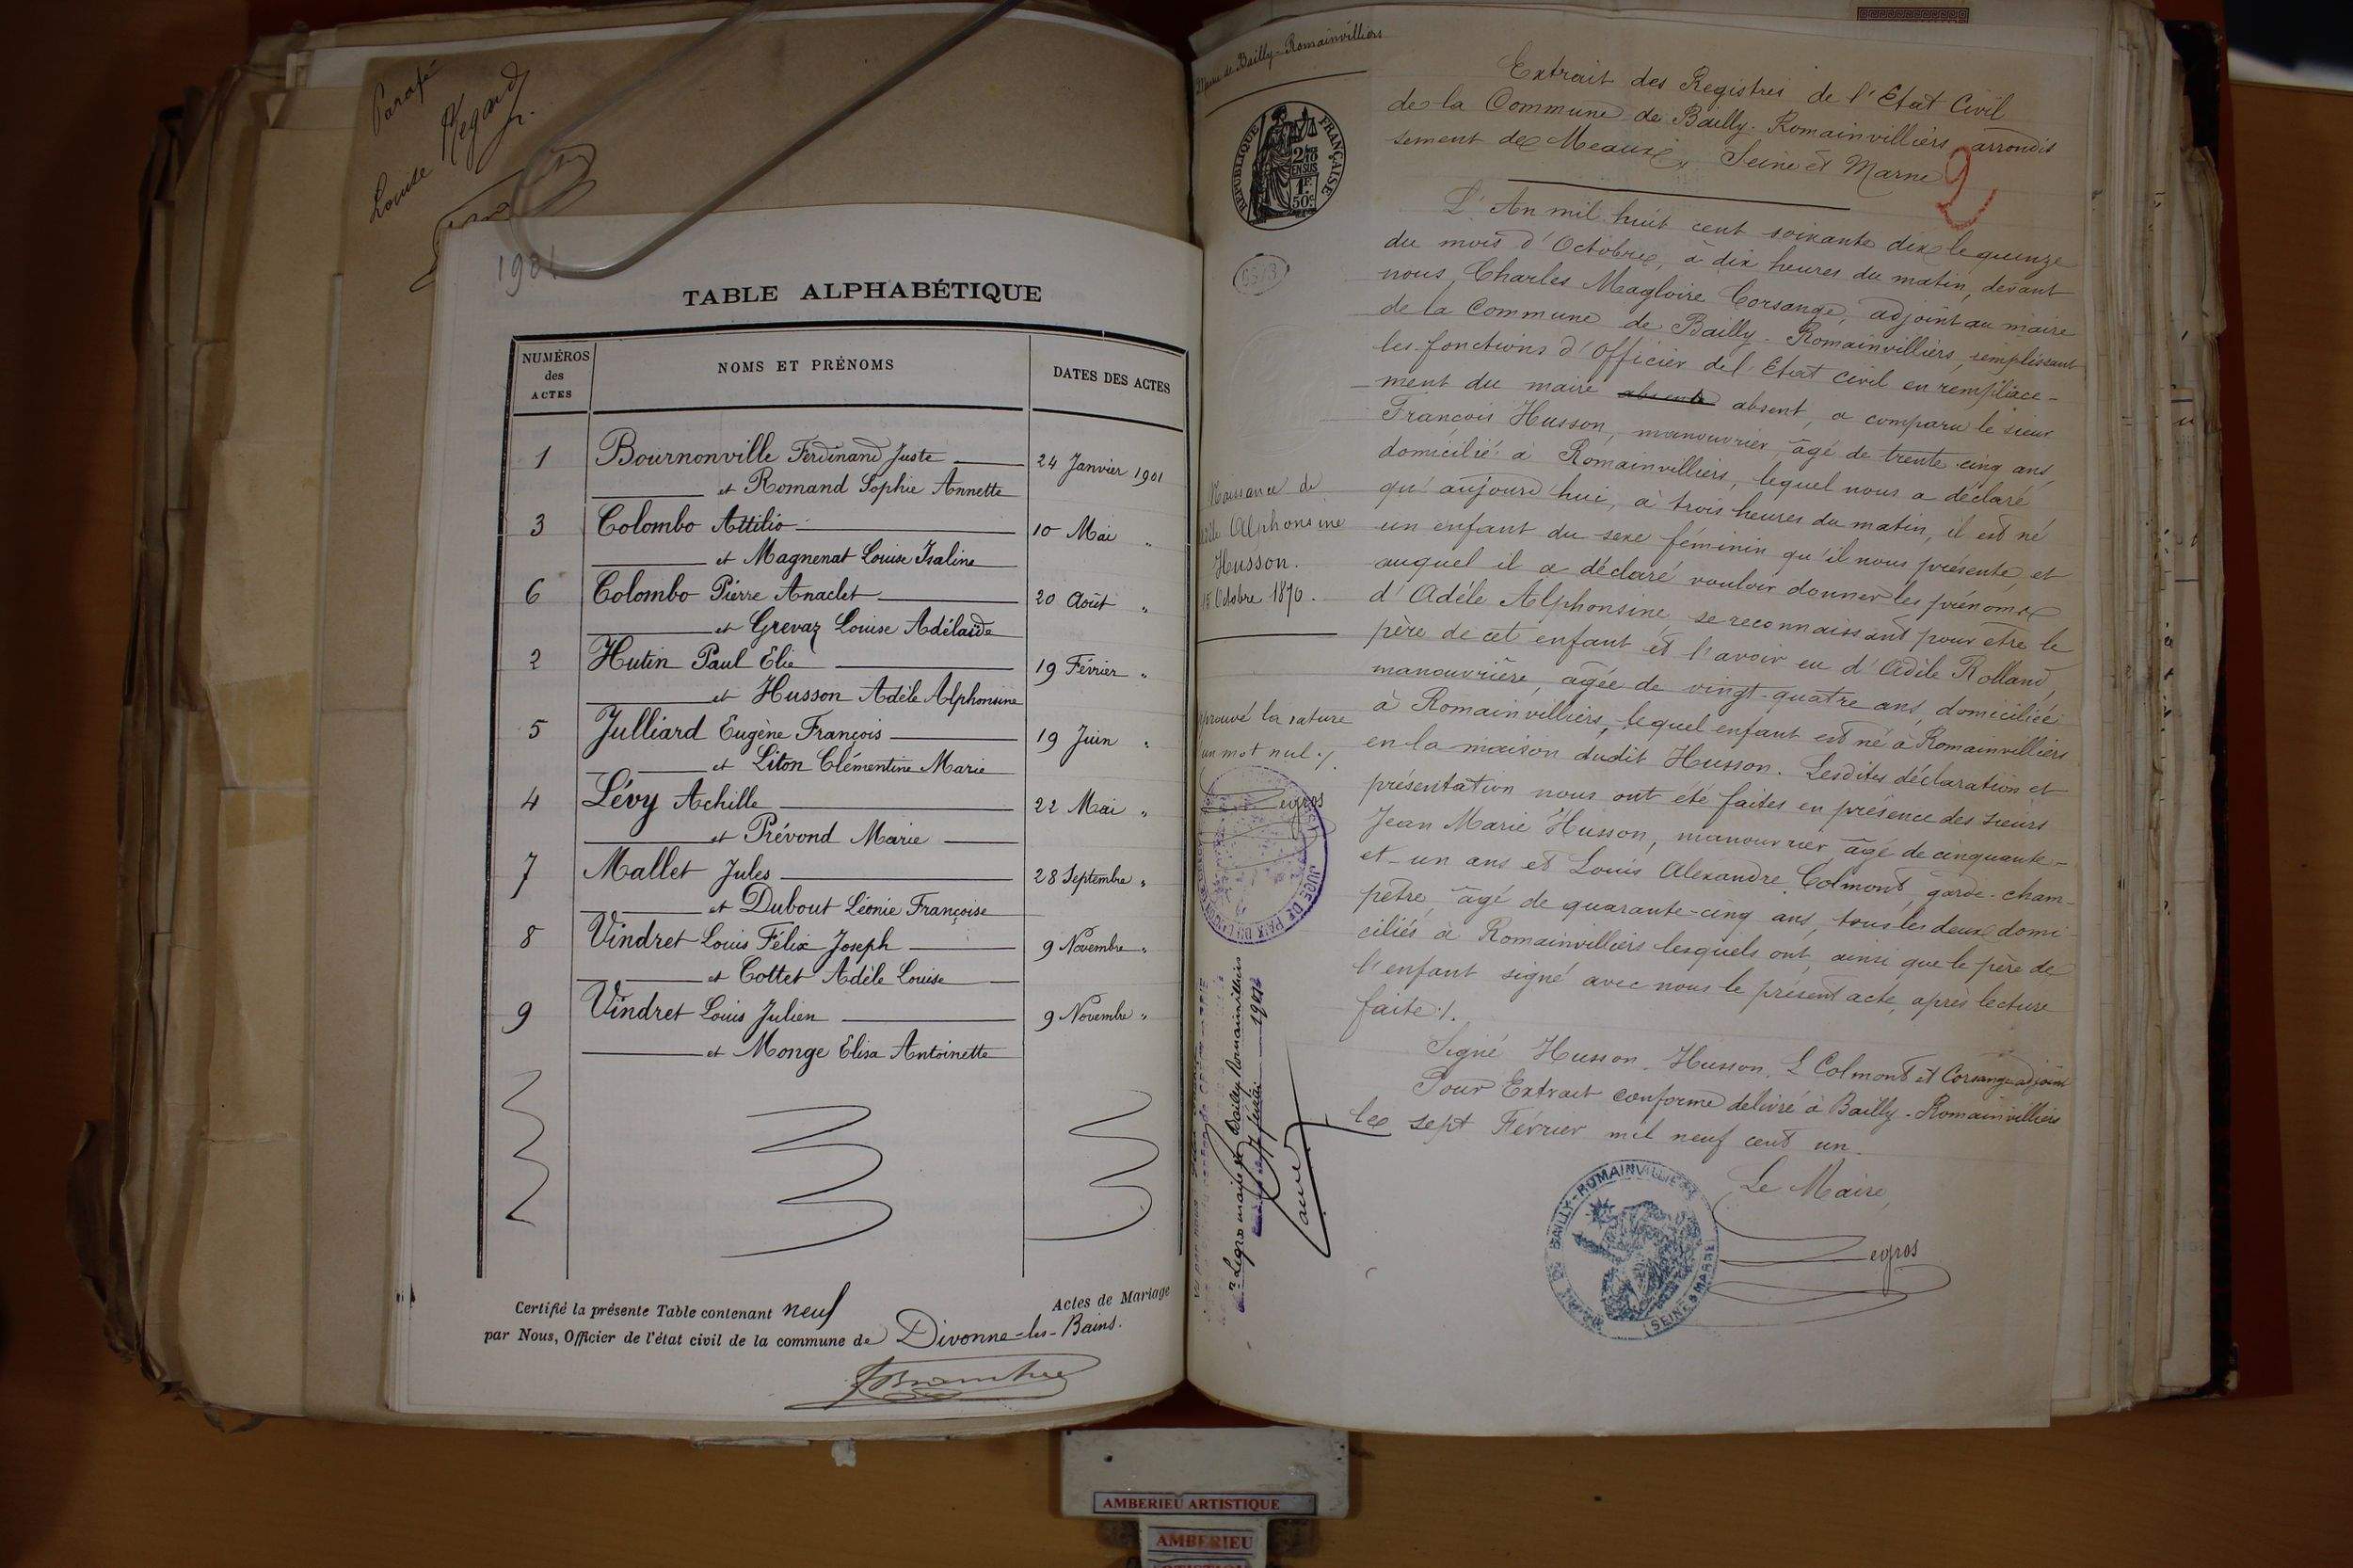 Parafé
Louise Regard
1901
TABLE ALPHABÉTIQUE
NUMÉROS des ACTES NOMS ET PRÉNOMS DATES DES ACTES
1 Bournonville Ferdinand Juste 24 Janvier 1901
et Romand Sophie Annette
3 Colombo Attilio 10 Mai "
et Magnenat Louise Isaline
6 Colombo Pierre Anaclet 20 Août "
et Grevaz Louise Adélaïde
2 Hutin Paul Elie 19 Février "
et Husson Adèle Alphonsine
5 Julliard Eugène François 19 Juin "
et Liton Clémentine Marie
4 Lévy Achille 22 Mai "
et Prévond Marie
7 Mallet Jules 28 Septembre "
et Dubout Léonie Françoise
8 Vindret Louis Félix Joseph 9 Novembre "
et Cottet Adèle Louise
9 Vindret Louis Julien 9 Novembre "
et Monge Elisa Antoinette
Certifié la présente Table contenant neuf Actes de Mariage
par Nous, Officier de l'état civil de la commune de Divonne-les-Bains.
Mairie de Bailly-Romainvilliers
RÉPUBLIQUE FRANÇAISE
2/10
EN SUS
1F.
50c
Naissance de
Adèle Alphonsine
Husson.
15 Octobre 1870.
approuvé la rature
un mot nul ./.
Legros
JUGE DE PAIX DU CANTON
Legros maire de Bailly-Romainvilliers
7 février 1901
Extrait des Registres de l'Etat Civil
de la Commune de Bailly-Romainvilliers arrondis
sement de Meaux, Seine et Marne
2
L'An mil huit cent soixante dix le quinze
du mois d'Octobre, à dix heures du matin, devant
nous, Charles Magloire Corsange, adjoint au maire
de la Commune de Bailly-Romainvilliers, remplissant
les fonctions d'Officier de l'Etat civil en remplace-
ment du maire absent absent, a comparu le sieur
François Husson, manouvrier, âgé de trente-cinq ans,
domicilié à Romainvilliers, lequel nous a déclaré
qu'aujourd'hui, à trois heures du matin, il est né
un enfant du sexe féminin qu'il nous présente, et
auquel il a déclaré vouloir donner les prénoms
d'Adèle Alphonsine, se reconnaissant pour être le
père de cet enfant et l'avoir eu d'Adèle Rolland,
manouvrière, âgée de vingt-quatre ans, domiciliée
à Romainvilliers, lequel enfant est né à Romainvilliers
en la maison dudit Husson. Lesdites déclaration et
présentation nous ont été faites en présence des sieurs
Jean Marie Husson, manouvrier âgé de cinquante-
et-un ans et Louis Alexandre Colmont, garde-cham-
pêtre, âgé de quarante-cinq ans, tous les deux domi-
ciliés à Romainvilliers lesquels ont, ainsi que le père de
l'enfant signé avec nous le présent acte, après lecture
faite ./.
Signé Husson, Husson, L Colmont et Corsange adjoint
Pour Extrait conforme délivré à Bailly-Romainvilliers
le sept Février mil neuf cent un.
Le Maire,
Legros
BAILLY-ROMAINVILLIERS
(SEINE & MARNE)
AMBERIEU ARTISTIQUE
AMBERIEU